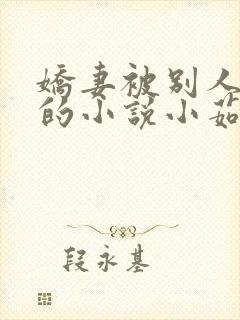 嬌妻被别人
的小說小茹
段永基